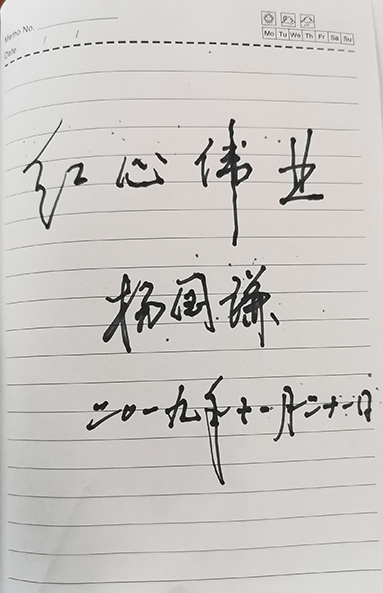 Memo No.
Mo Tu We Th Fr Sa Su
Date / /
红心伟业
杨国谦
二〇一九年十一月二十一日